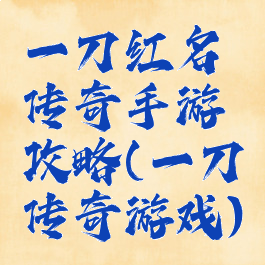 一刀红名
传奇手游
攻略(一刀
传奇游戏)